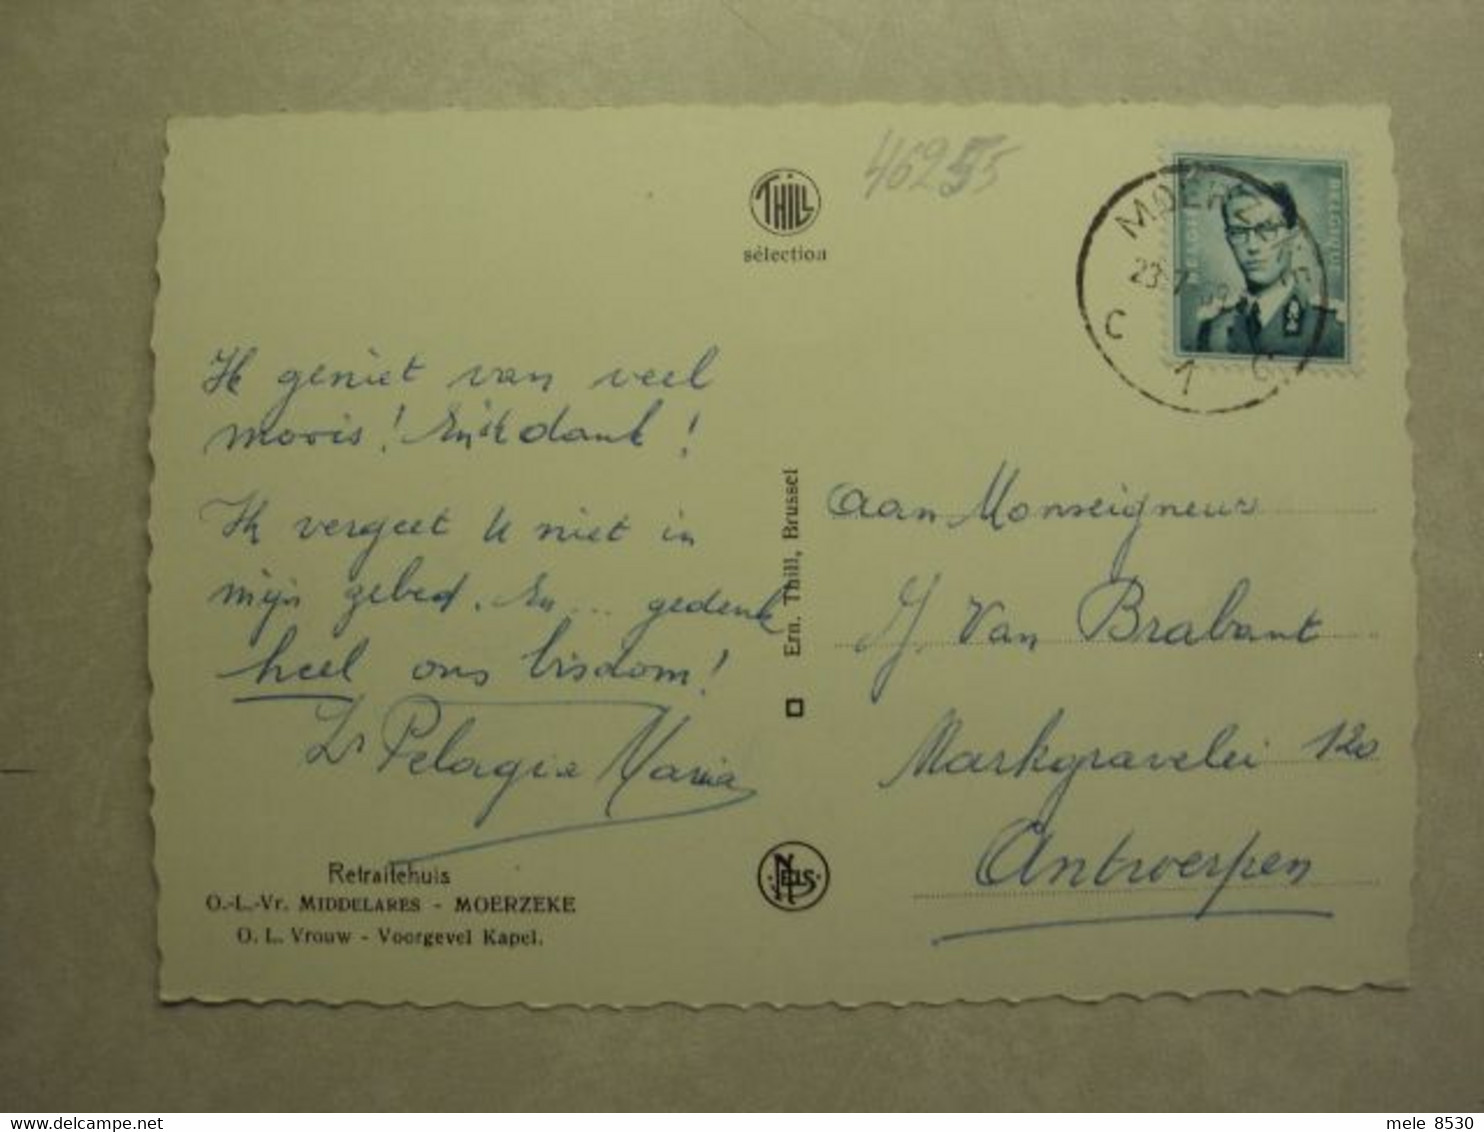 46255
THILL
sélection
MOERZEKE
23-7
C 1 C
BELGIE BELGIQUE
Ik geniet van veel
moois! Rijk dank!
Ik vergeet U niet in
mijn gebed. En... gedenk
heel ons bisdom!
Zr Pelagie Maria
Retraitehuis
O.-L.-Vr. MIDDELARES - MOERZEKE
O. L. Vrouw - Voorgevel Kapel.
Ern. Thill, Brussel
NELS
Aan Monseigneur
J. Van Brabant
Markgravelei 120
Antwerpen
mele 8530